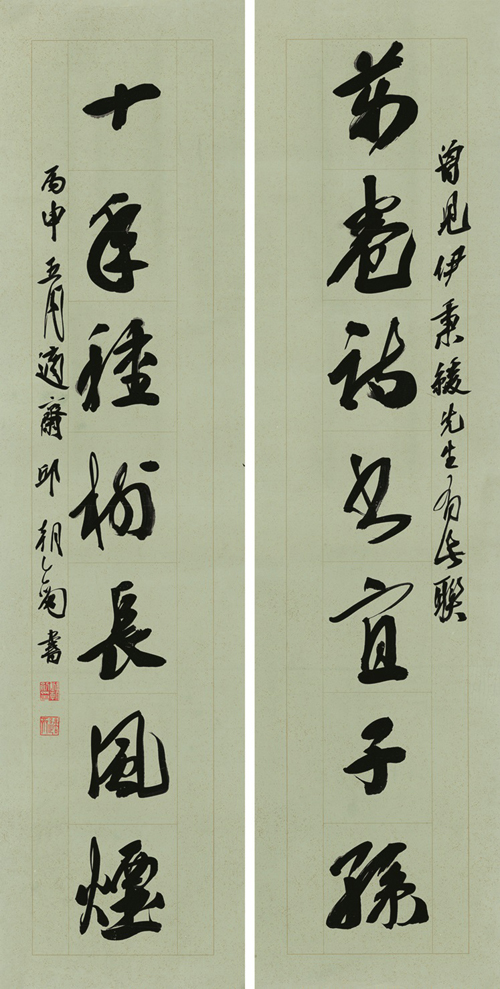 曾見伊秉綬先生有此聯
萬卷詩書宜子孫
十年種樹長風煙
丙申五月適邱朝書